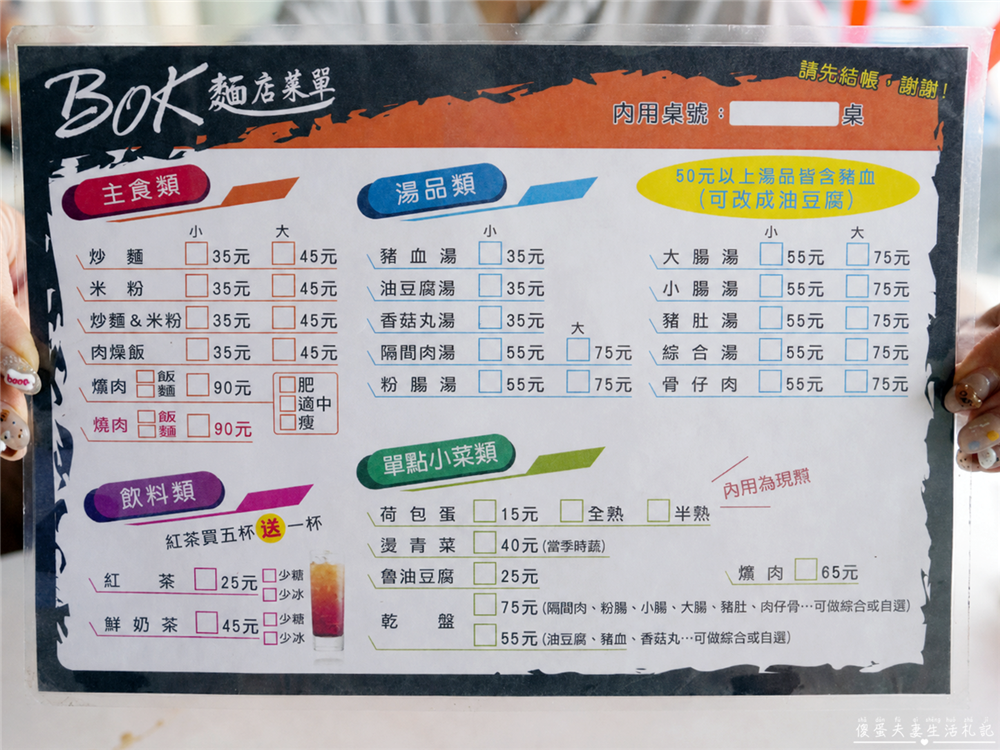 BOK 麵店菜單
請先結帳，謝謝!
內用桌號： 桌
主食類
小 大
炒麵 35元 45元
米粉 35元 45元
炒麵&米粉 35元 45元
肉燥飯 35元 45元
爌肉 飯 麵 90元
燒肉 飯 麵 90元
肥
適中
瘦
湯品類
小
豬血湯 35元
油豆腐湯 35元
香菇丸湯 35元
大
隔間肉湯 55元 75元
粉腸湯 55元 75元
50元以上湯品皆含豬血
(可改成油豆腐)
小 大
大腸湯 55元 75元
小腸湯 55元 75元
豬肚湯 55元 75元
綜合湯 55元 75元
骨仔肉 55元 75元
飲料類
紅茶買五杯送一杯
紅茶 25元 少糖 少冰
鮮奶茶 45元 少糖 少冰
單點小菜類
內用為現煎
荷包蛋 15元 全熟 半熟
燙青菜 40元 (當季時蔬)
魯油豆腐 25元
爌肉 65元
乾盤 75元 (隔間肉、粉腸、小腸、大腸、豬肚、肉仔骨…可做綜合或自選)
55元 (油豆腐、豬血、香菇丸…可做綜合或自選)
傻蛋夫妻生活札記